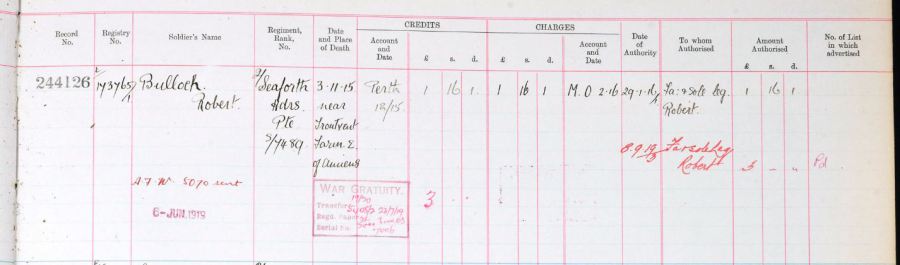 CREDITS
CHARGES
Record No.
Registry No.
Soldier's Name
Regiment, Rank, No.
Date and Place of Death
Account and Date
£ s. d.
£ s. d.
Account and Date
Date of Authority
To whom Authorised
Amount Authorised
£ s. d.
No. of List in which advertised
244126
173765/1
Bulloch
Robert
Seaforth
Hdrs
Pte
S/7489
3.11.15
near
Frontvert
Farm E.
of Amiens
Perth
12/15
1 16 1
1 16 1
M.O 2.16
29.1.16
Fa: & Sole Leg.
Robert.
1 16 1
8.9.19
Fa & sole Leg
Robert
3 - -
Pd
A.F.W. 5070 sent
6-JUN.1919
WAR GRATUITY.
Transfer
Regd. Paper
Serial No.
3